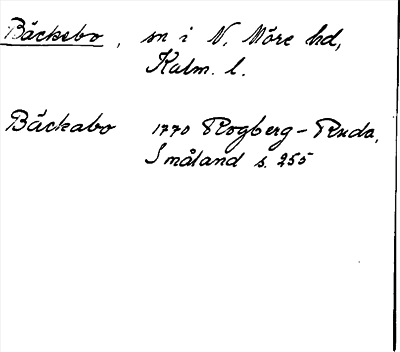 Bäckebo, sn i N. Möre hd,
Kalm. l.
Bäckabo 1770 Rogberg-Ruda,
Småland s. 255